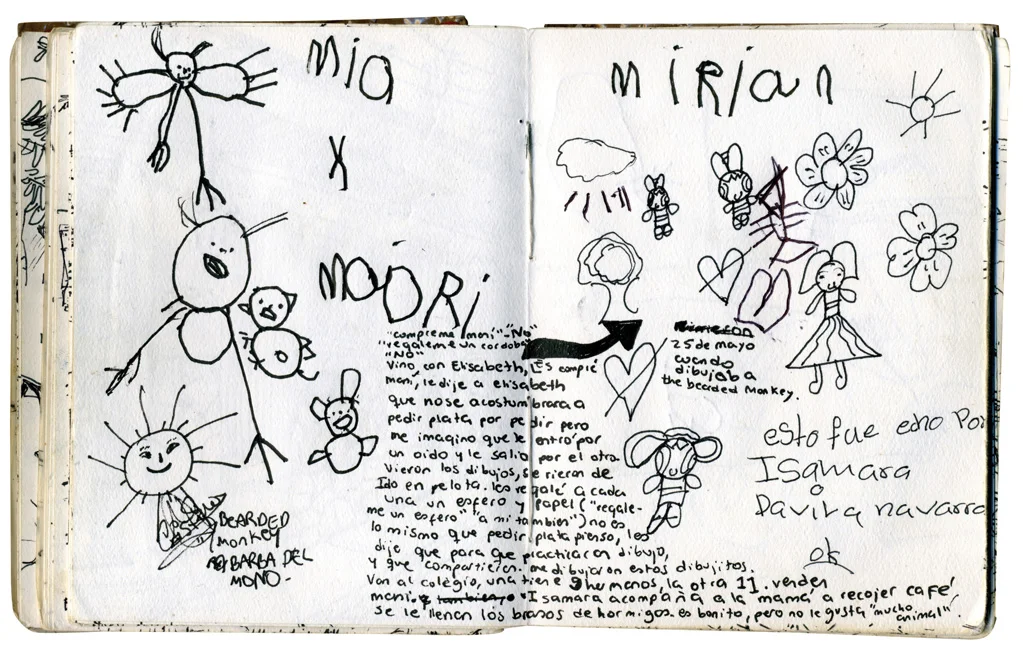 Mia
X
MODRi
"compreme mani" - "No"
"regaleme un cordoba"
"NO"
Vino con Elisabeth, Les compré
mani, le dije a elisabeth
que no se acostumbrara a
pedir plata por pedir pero
me imagino que le entró por
un oido y le salio por el otro.
Vieron los dibujos, se rieron de
Ido en pelota. les regalé a cada
una un esfero y papel ("regale-
me un esfero" "a mi tambien") no es
lo mismo que pedir plata pienso, les
dije que para que practicaran dibujo,
y que compartieran. me dibujaron estos dibujitos.
Van al colegio, una tiene 9 hermanos, la otra 11. venden
mani. Isamara acompaña a la mamá a recojer café,
se le llenan los brasos de hormigas. es bonito, pero no le gusta "mucho
animal".
BEARDED
monkey
BARBA DEL
MONO.
MiRian
25 de mayo
cuando
dibujaba
the bearded Monkey.
esto fue echo Por
ISamara
o
Davira navarra
ok